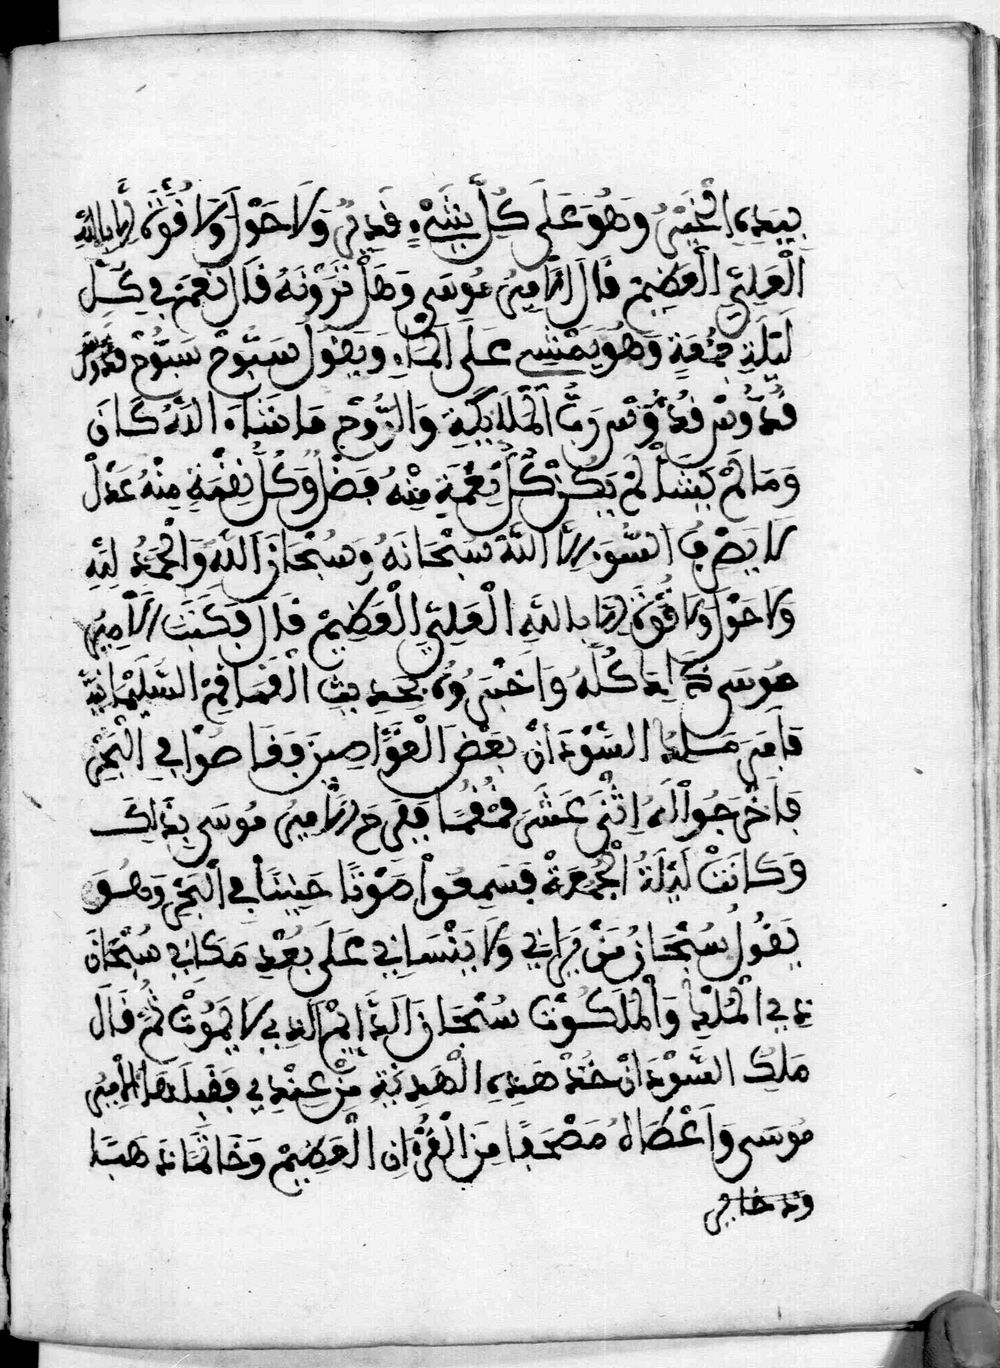 بِيَدِهِ الْخَيْرُ وَهُوَ عَلَى كُلِّ شَيْءٍ قَدِيرٌ وَلَا حَوْلَ وَلَا قُوَّةَ إِلَّا بِاللَّهِ
الْعَلِيِّ الْعَظِيمِ قَالَ الْأَمِيرُ مُوسَى وَهَلْ تَرَوْنَهُ قَالَ نَعَمْ فِي كُلِّ
لَيْلَةِ جُمُعَةٍ وَهُوَ يَمْشِي عَلَى الْمَاءِ وَيَقُولُ سَبُّوحٌ سَبُّوحٌ قُدُّوسٌ
قُدُّوسٌ قُدُّوسٌ رَبُّ الْمَلَائِكَةِ وَالرُّوحِ مَا شَاءَ اللَّهُ كَانَ
وَمَا لَمْ يَشَأْ لَمْ يَكُنْ كُلُّ نِعْمَةٍ مِنْهُ فَضْلٌ وَكُلُّ نِقْمَةٍ مِنْهُ عَدْلٌ
لَا يَصْرِفُ السُّوءَ إِلَّا اللَّهُ سُبْحَانَهُ وَسُبْحَانَ اللَّهِ وَالْحَمْدُ لِلَّهِ
وَلَا حَوْلَ وَلَا قُوَّةَ إِلَّا بِاللَّهِ الْعَلِيِّ الْعَظِيمِ قَالَ فَكَتَبَ الْأَمِيرُ
مُوسَى ذَلِكَ كُلَّهُ وَأَخْبَرُوهُ بِحَدِيثِ الْقَمَاقِمِ السُّلَيْمَانِيَّةِ
فَأَمَرَ مَلِكُ السُّودَانِ بَعْضَ الْغَوَّاصِينَ فَغَاصُوا فِي الْبَحْرِ
فَأَخْرَجُوا لَهُ اثْنَى عَشَرَ قُمْقُمًا فَفَرِحَ الْأَمِيرُ مُوسَى بِذَلِكَ
وَكَانَتْ لَيْلَةُ الْجُمُعَةْ فَسَمِعُوا صَوْتًا حَنِينًا فِي الْبَحْرِ وَهُوَ
يَقُولُ سُبْحَانَ مَنْ يَرَانِي وَلَا يَنْسَانِي عَلَى بُعْدِ مَكَانِي سُبْحَانَ
ذِي الْمُلْكِ وَالْمَلَكُوتِ سُبْحَانَ الدَّائِمِ الَّذِي لَا يَمُوتُ ثُمَّ قَالَ
مَلِكُ السُّودَانِ خُذْ هَذِهِ الْهَدِيَّةِ مِنْ عِنْدِي فَقَبِلَهَا الْأَمِيرُ
مُوسَى وَأَعْطَاهُ مُصْحَفًا مِنَ الْقُرْآنِ الْعَظِيمِ وَخَاتَمًا ذَهَبًا